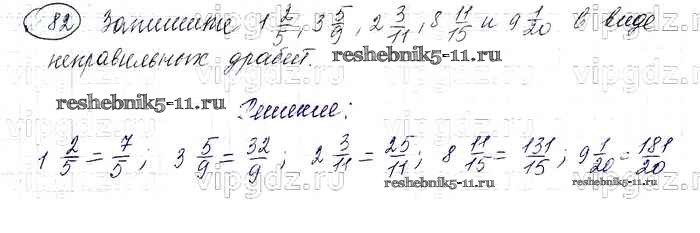 82 Запишите 1 2/5, 3 5/9, 2 3/11, 8 11/15 и 9 1/20 в виде
неправильных дробей.
reshebnik5-11.ru
reshebnik5-11.ru
Решение:
1 2/5 = 7/5; 3 5/9 = 32/9; 2 3/11 = 25/11; 8 11/15 = 131/15; 9 1/20 = 181/20
reshebnik5-11.ru
reshebnik5-11.ru
vipgdz.ru